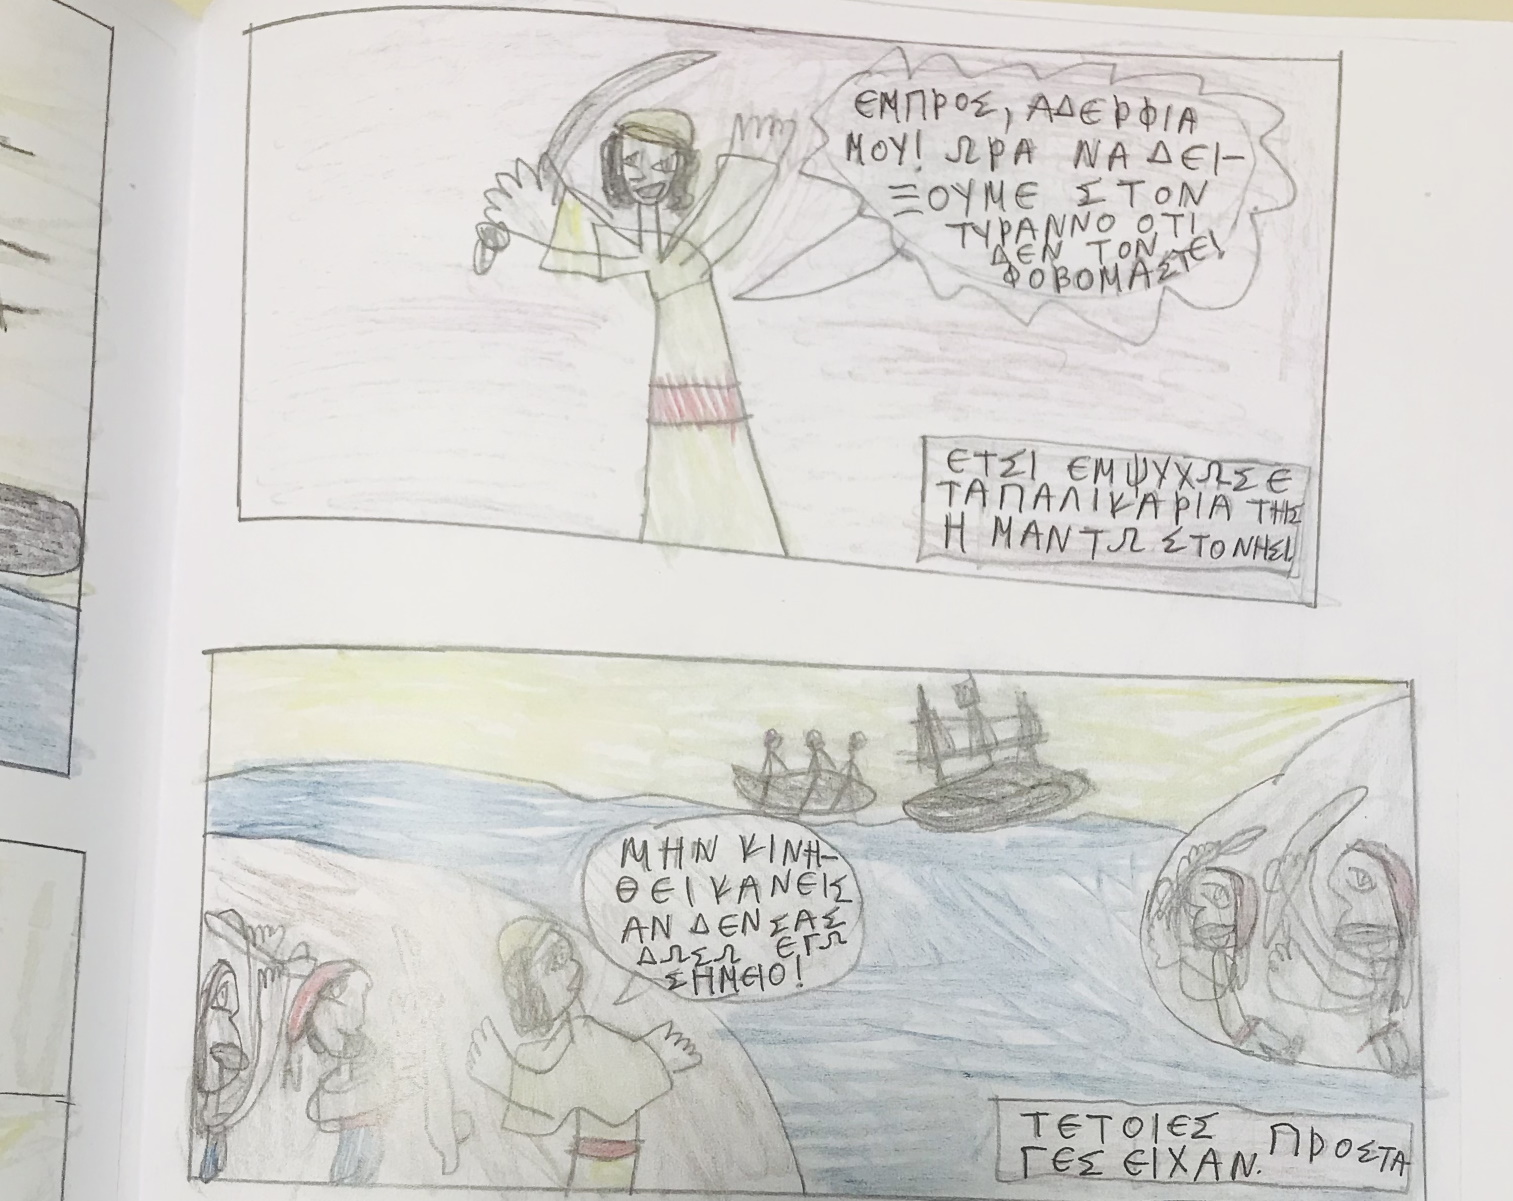 ΕΜΠΡΟΣ, ΑΔΕΡΦΙΑ
ΜΟΥ! ΩΡΑ ΝΑ ΔΕΙ-
ΞΟΥΜΕ ΣΤΟΝ
ΤΥΡΑΝΝΟ ΟΤΙ
ΔΕΝ ΤΟΝ
ΦΟΒΟΜΑΣΤΕ!
ΕΤΣΙ ΕΜΨΥΧΩΣΕ
ΤΑ ΠΑΛΙΚΑΡΙΑ ΤΗΣ
Η ΜΑΝΤΩ ΣΤΟ ΝΗΣΙ
ΜΗΝ ΚΙΝΗ-
ΘΕΙ ΚΑΝΕΙΣ
ΑΝ ΔΕΝ ΣΑΣ
ΔΩΣΩ ΕΓΩ
ΣΗΜΕΙΟ!
ΤΕΤΟΙΕΣ ΠΡΟΣΤΑ
ΓΕΣ ΕΙΧΑΝ.